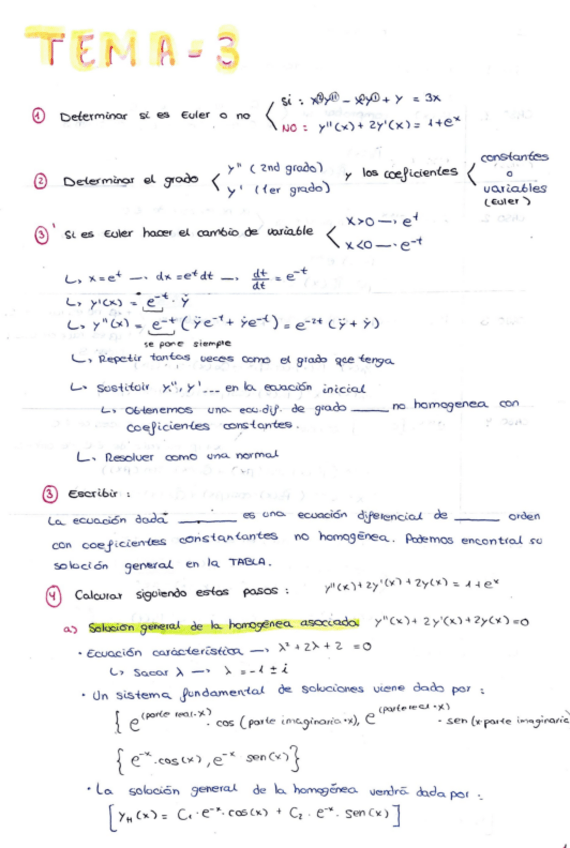 TEMA-3
① Determinar si es Euler o no < Si : x²y'' - x'y' + y = 3x
NO : y''(x) + 2y'(x) = 1+eˣ
② Determinar el grado < y'' (2nd grado)
y' (1er grado)
y los coeficientes < constantes
o
variables
(Euler)
③' Si es Euler hacer el cambio de variable < x>0 → eᵗ
x<0 → e⁻ᵗ
↳ x=eᵗ → dx=eᵗdt → dt/dt = e⁻ᵗ
↳ y'(x) = e⁻ᵗ · ẏ
↳ y''(x) = e⁻ᵗ (ÿe⁻ᵗ + ẏe⁻ᵗ) = e⁻²ᵗ (ÿ + ẏ)
se pone siempre
↳ Repetir tantas veces como el grado que tenga
↳ Sustituir y'', y'... en la ecuación inicial
↳ Obtenemos una ecu.dif. de grado ____ no homogenea con
coeficientes constantes.
↳ Resolver como una normal
③ Escribir :
La ecuación dada ____ es una ecuación diferencial de ____ orden
con coeficientes constantantes no homogénea. Podemos encontral su
solución general en la TABLA.
④ Calcular siguiendo estos pasos : y''(x)+2y'(x)+2y(x) = 1+eˣ
a) Solución general de la homogénea asociada y''(x) + 2y'(x)+2y(x)=0
· Ecuación característica → λ² + 2λ + 2 = 0
↳ Sacar λ → λ = -1 ± i
· Un sistema fundamental de soluciones viene dado por :
{ e^(parte real·x) · cos (parte imaginaria·x), e^(parte real·x) · sen (x·parte imaginaria
{ e⁻ˣ·cos(x), e⁻ˣ sen(x)}
· La solución general de la homogénea vendrá dada por :
[ yH(x) = C₁·e⁻ˣ·cos(x) + C₂·e⁻ˣ·sen(x) ]